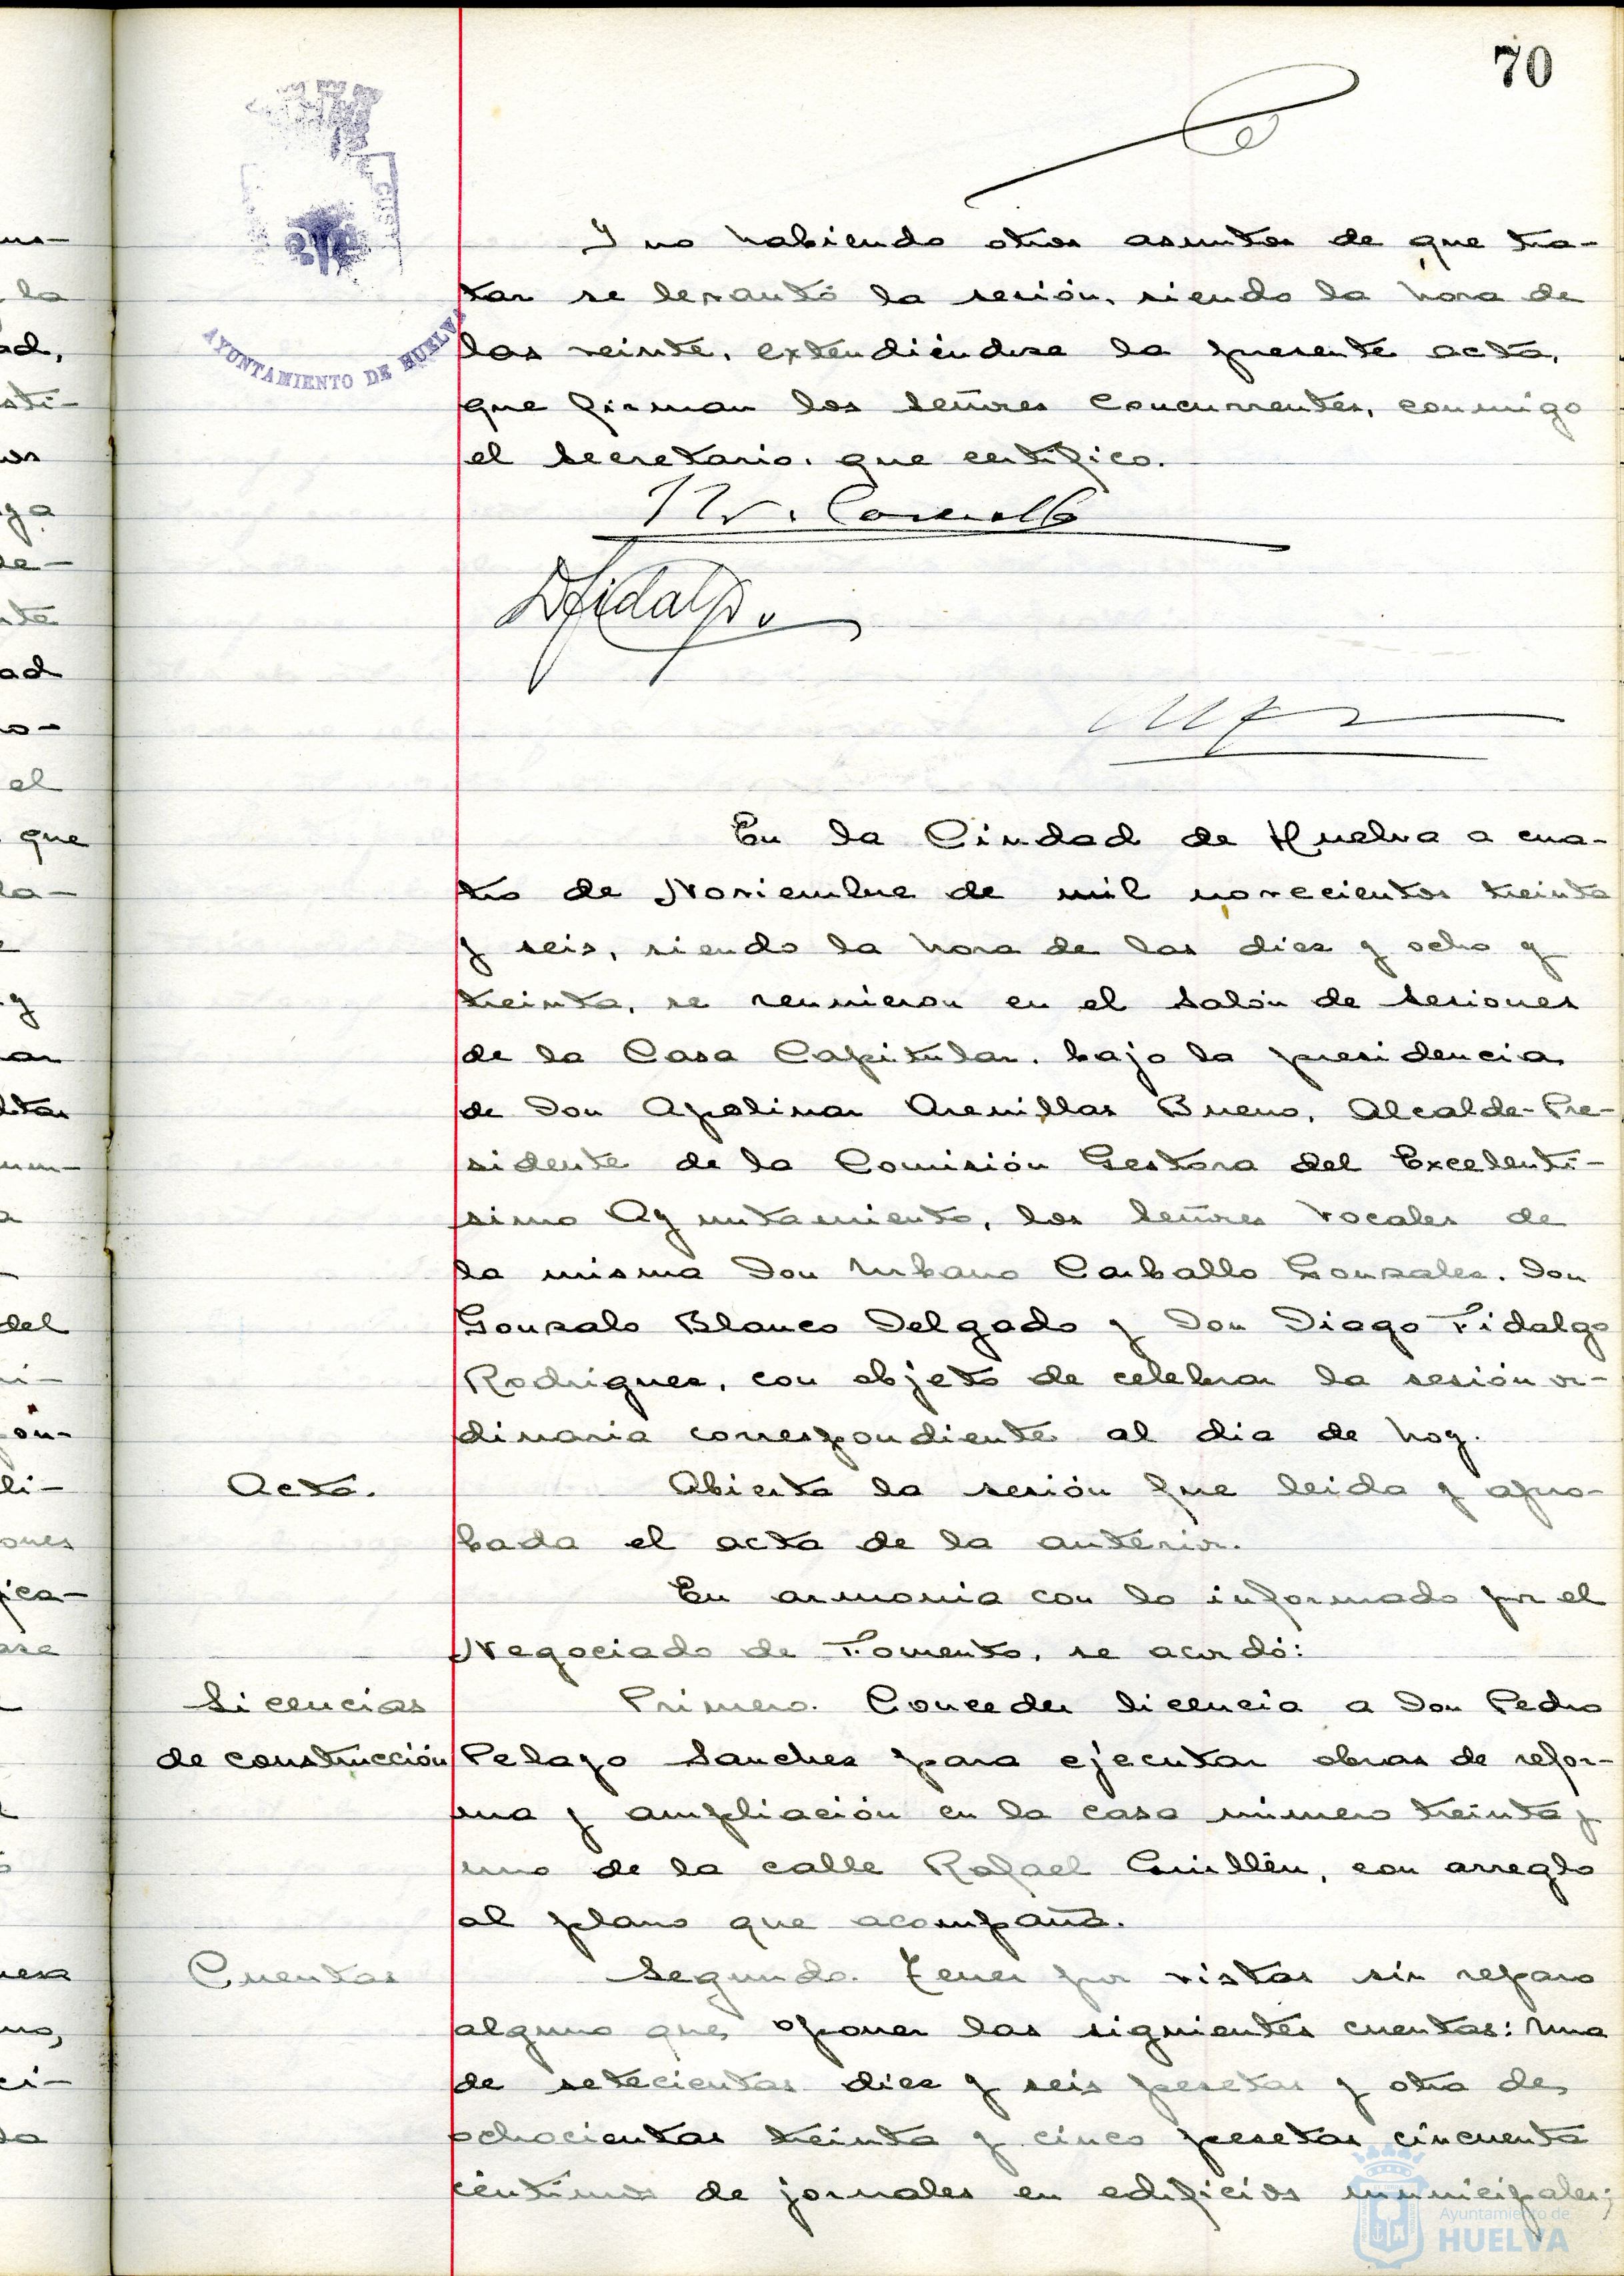 70
AYUNTAMIENTO DE HUELVA
Y no habiendo otros asuntos de que tra-
tar se levantó la sesión, siendo la hora de
las veinte, extendiéndose la presente acta,
que firman los Señores Concurrentes, conmigo
el Secretario, que certifico.
DFidalgo
En la Ciudad de Huelva a cua-
tro de Noviembre de mil novecientos treinta
y seis, siendo la hora de las diez y ocho y
treinta, se reunieron en el Salón de Sesiones
de la Casa Capitular, bajo la presidencia
de Don Apolinar Arenillas Bueno, Alcalde-Pre-
sidente de la Comisión Gestora del Excelentí-
simo Ayuntamiento, los Señores Vocales de
la misma Don Urbano Carballo Gonzalez, Don
Gonzalo Blanco Delgado y Don Diego Fidalgo
Rodriguez, con objeto de celebrar la sesión or-
dinaria correspondiente al dia de hoy.
Acta.
Abierta la sesión fue leida y apro-
bada el acta de la anterior.
En armonia con lo informado por el
Negociado de Fomento, se acordó:
Licencias
de construcción
Primero. Conceder licencia a Don Pedro
Pelayo Sanchez para ejecutar obras de refor-
ma y ampliación en la casa número treinta y
uno de la calle Rafael Guillén, con arreglo
al plano que acompaña.
Cuentas
Segundo. Tener por vistas sin reparo
alguno que oponer las siguientes cuentas: Una
de setecientas diez y seis pesetas y otra de
ochocientas treinta y cinco pesetas cincuenta
céntimos de jornales en edificios municipales;
Ayuntamiento de
HUELVA